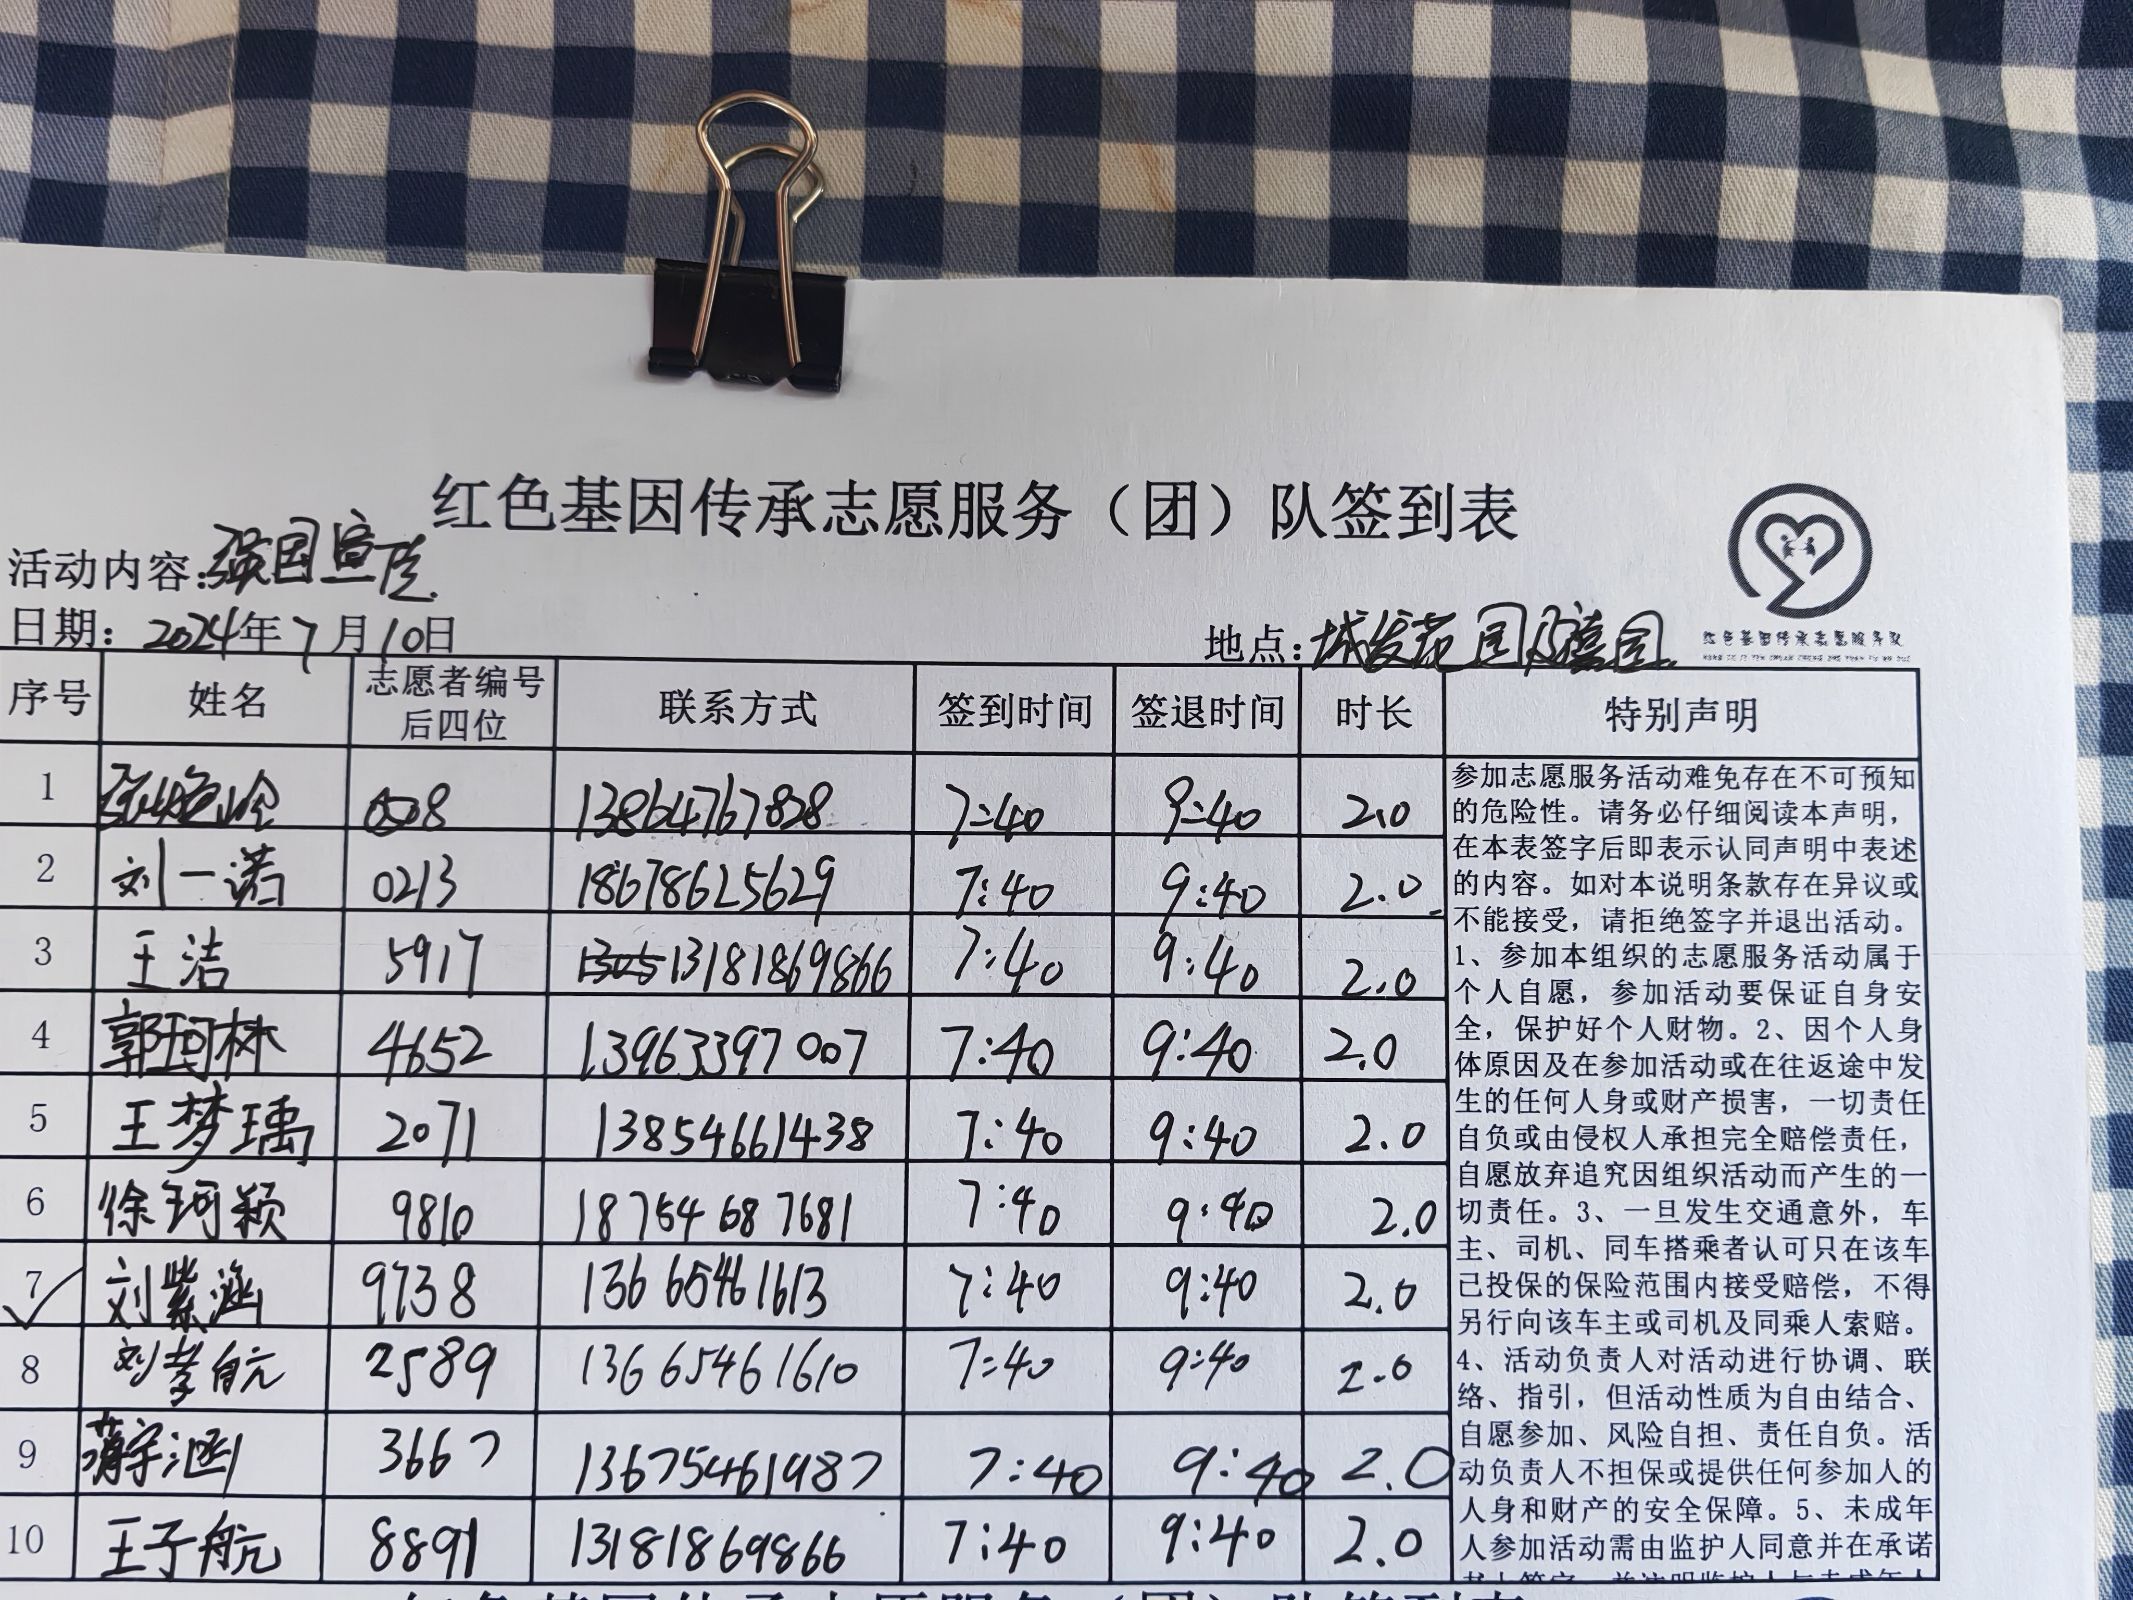 红色基因传承志愿服务（团）队签到表
活动内容：强国宣传
日期：2024年7月10日
地点：城发花园及德园
红色基因传承志愿服务队
序号 姓名 志愿者编号后四位 联系方式 签到时间 签退时间 时长 特别声明
1 13864767828 7:40 9:40 2.0
2 刘一诺 0213 18678625629 7:40 9:40 2.0
3 王洁 5917 13181869866 7:40 9:40 2.0
4 郭珂林 4652 13963397007 7:40 9:40 2.0
5 王梦瑀 2071 13854661438 7:40 9:40 2.0
6 徐珂颖 9810 18754687681 7:40 9:40 2.0
7 刘紫涵 9738 13665461613 7:40 9:40 2.0
8 刘孝航 2589 13665461610 7:40 9:40 2.0
9 蒋宇涵 3667 13675461987 7:40 9:40 2.0
10 王子航 8891 13181869866 7:40 9:40 2.0
参加志愿服务活动难免存在不可预知
的危险性。请务必仔细阅读本声明，
在本表签字后即表示认同声明中表述
的内容。如对本说明条款存在异议或
不能接受，请拒绝签字并退出活动。
1、参加本组织的志愿服务活动属于
个人自愿，参加活动要保证自身安
全，保护好个人财物。2、因个人身
体原因及在参加活动或在往返途中发
生的任何人身或财产损害，一切责任
自负或由侵权人承担完全赔偿责任，
自愿放弃追究因组织活动而产生的一
切责任。3、一旦发生交通意外，车
主、司机、同车搭乘者认可只在该车
已投保的保险范围内接受赔偿，不得
另行向该车主或司机及同乘人索赔。
4、活动负责人对活动进行协调、联
络、指引，但活动性质为自由结合、
自愿参加、风险自担、责任自负。活
动负责人不担保或提供任何参加人的
人身和财产的安全保障。5、未成年
人参加活动需由监护人同意并在承诺